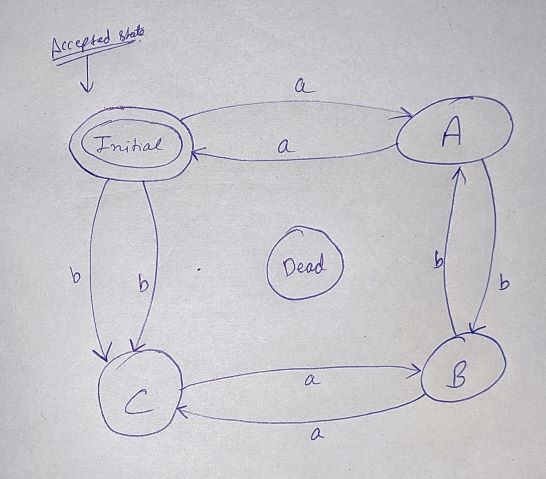 Accepted state
a
Initial
A
a
b
b
Dead
b
b
a
C
B
a